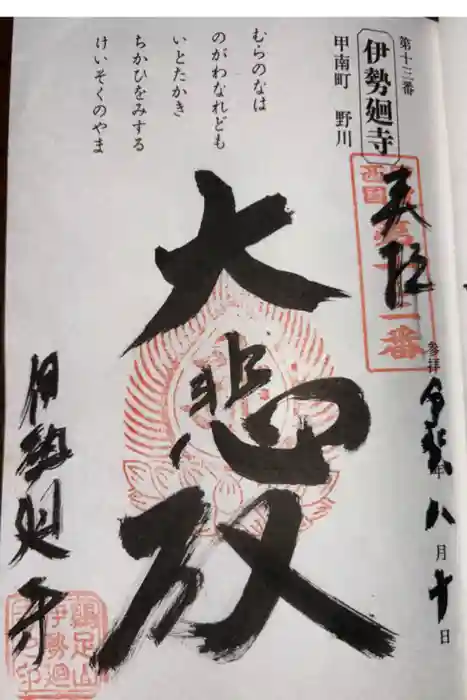 第十三番
伊勢廻寺
甲南町 野川
むらのなは
のがわなれども
いとたかき
ちかひをみする
けいそくのやま
奉拝
西国
第十三番
参拝 令和 年 八月十日
大悲殿
伊勢廻寺
鶏足山
伊勢廻
寺之印